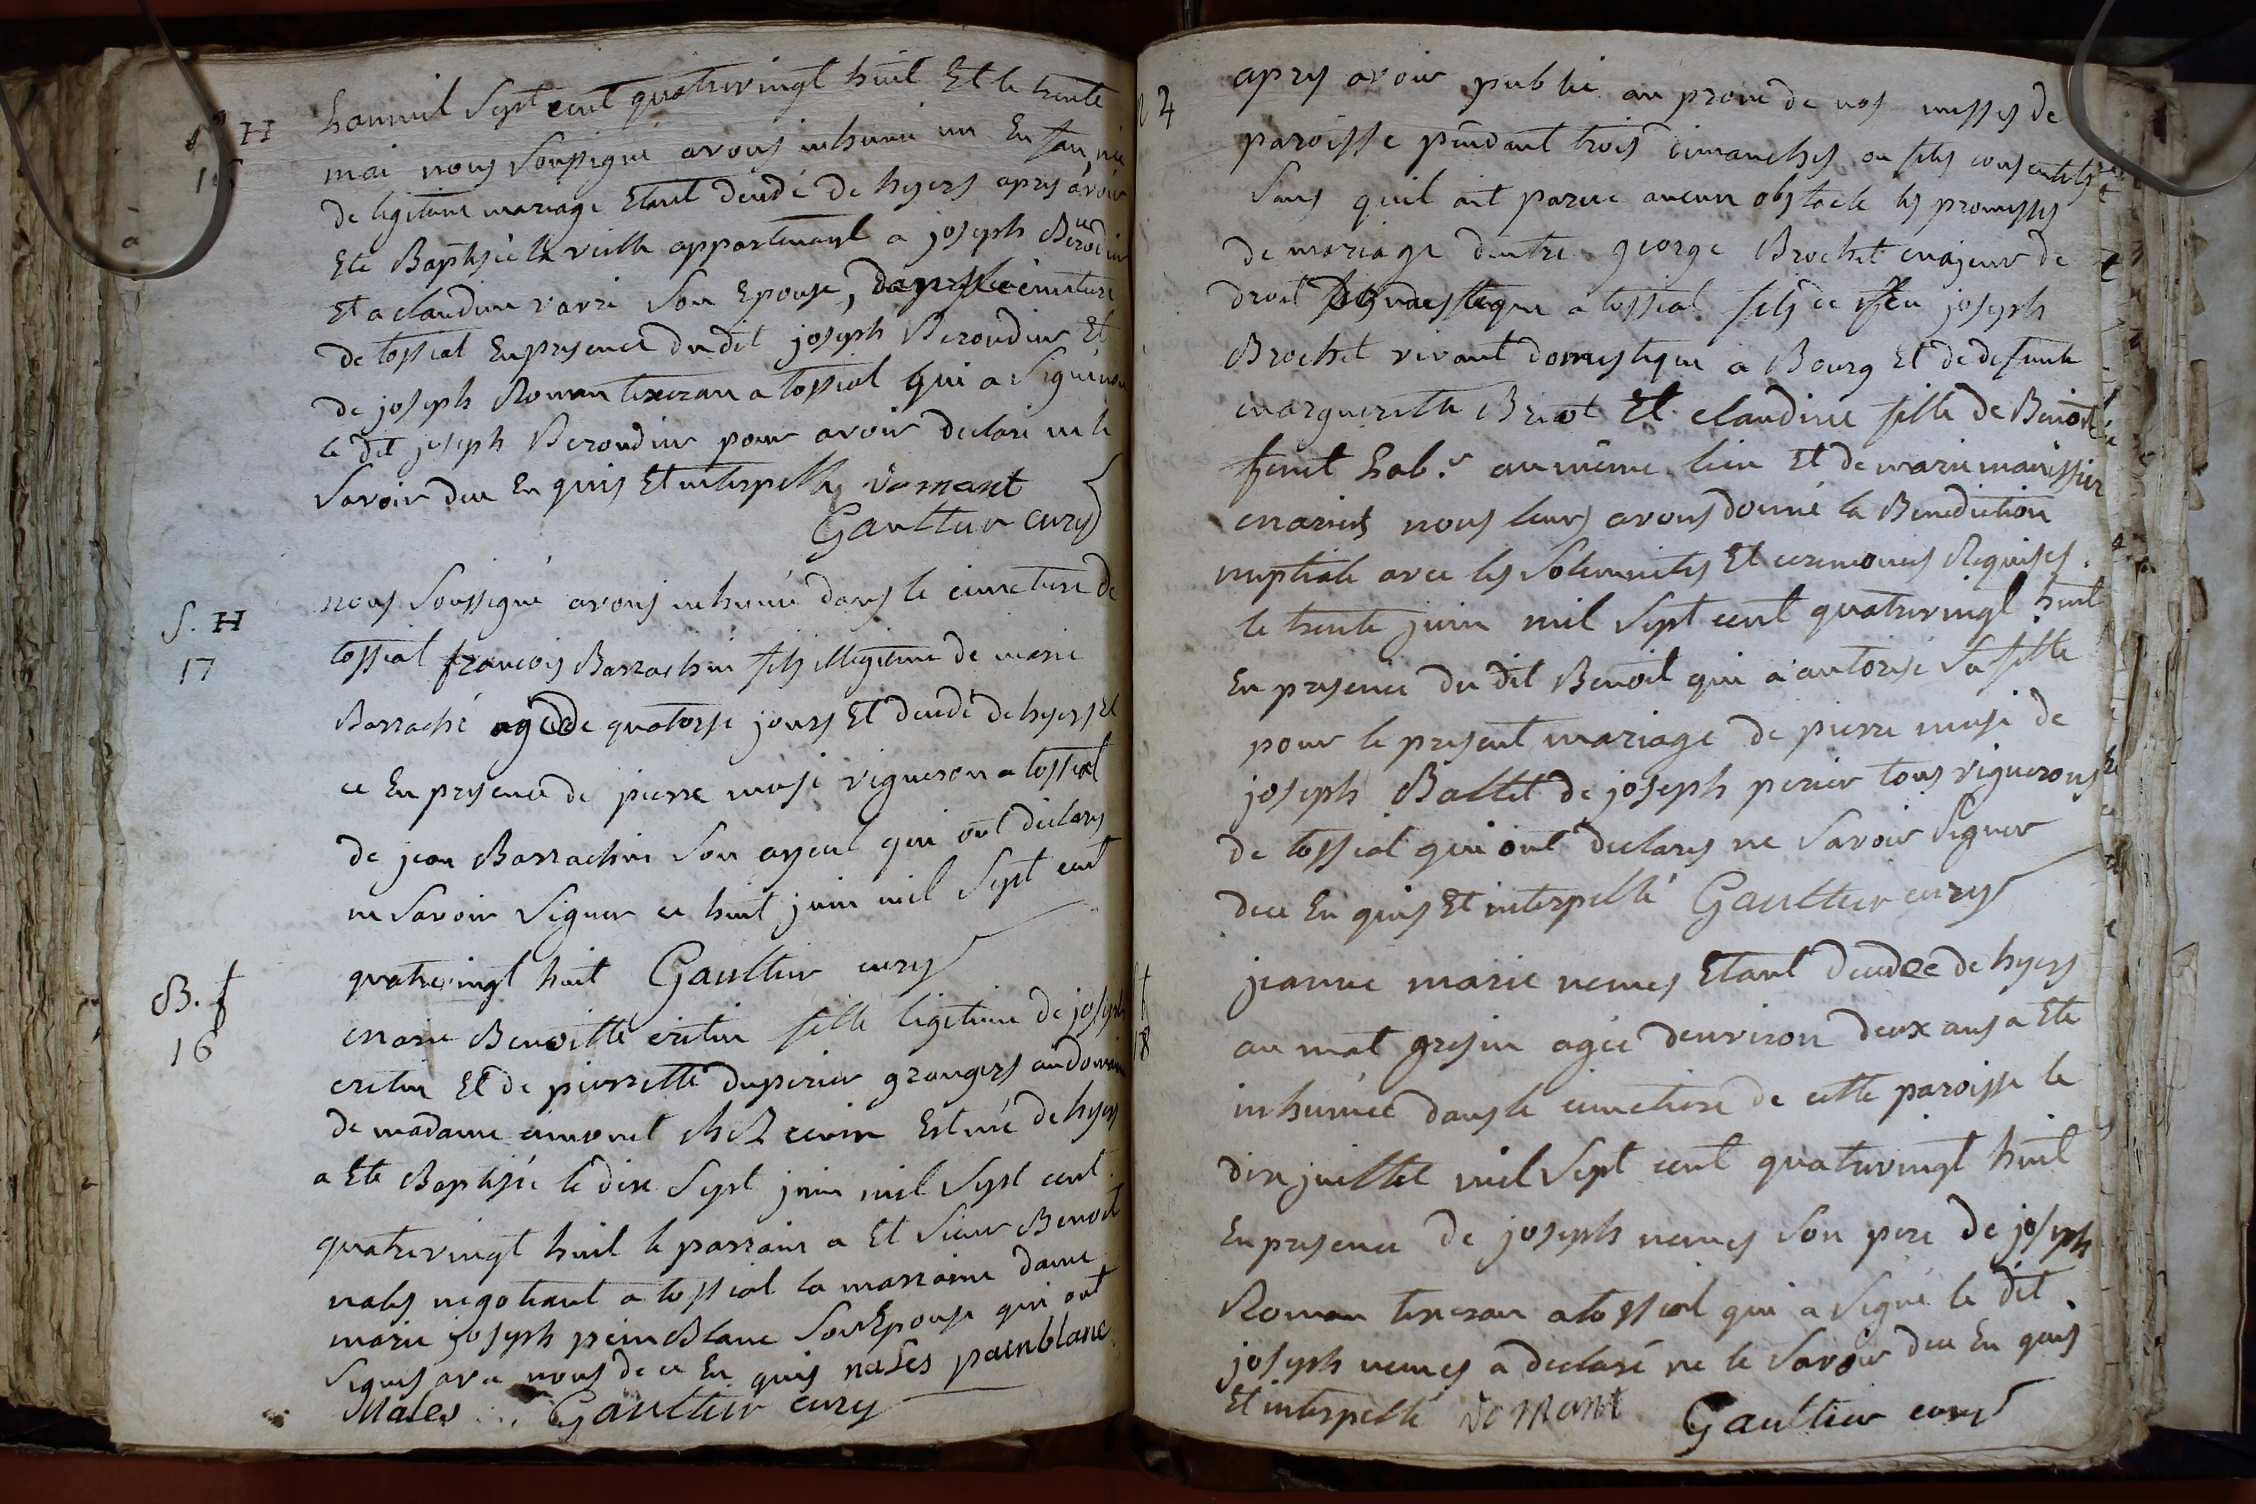 S. H
16
Lan mil Sept cent quatrevingt huit Et le trente
mai nous Soussigné avons inhumé un Enfan né
de legitime mariage Etant decedé de hyers apres avoir
Ete Baptisé la veille appartenant a joseph Beroudin
Et a claudine varri Son Epouse, dans le cimetiere
de tossiat En presence du dit joseph Beroudin Et
de joseph Roman texeran a tossiat qui a Signé non
le dit joseph Beroudin pour avoir declaré ne le
Savoir deu En quis Et interpellés romant
Gaultier curé
S. H
17
nous Soussigné avons inhumé dans le cimetiere de
tossiat francois Barrachin fils illegitime de marie
Barraché agé de quatorse jours Et decedé de hyers Et
ce En presence de pierre musi vigneron a tossiat
de jean Barrachin Son ayeul qui ont declarés
ne Savoir Signer ce huit juin mil Sept cent
quatrevingt huit Gaultier curé
B. f
16
marie Benoitte cretin fille legitime de joseph
cretin Et de pierrette duperier grangers au domaine
de madame cimonet chez cevin Est née de hyers
a Ete Baptisée le dix Sept juin mil Sept cent
quatrevingt huit le parrain a Et Sieur Benoit
nales negotiant a tossiat la marraine dame
marie joseph pein Blanc Son Epouse qui ont
Signes avec nous de ce En quis nales painblanc
Males Gaultier curé
4
apres avoir publié au prone de nos messes de
paroisse pendant trois dimanches ou fetes consecutifs
Sans quil ait parue aucun obstacle les promesses
de mariage dentre george Brochet majeur de
droit domestique a tossiat fils de feu joseph
Brochet vivant domestique a Bourg Et de defunte
marguerette Briot Et claudine fille de Benoit
feuit hab.r au même lieu Et de marie manissier
mariés nous leurs avons donné la Benediction
nuptiale avec les Solemnites Et ceremonies Requises.
le trente juin mil Sept cent quatrevingt huit
En presence du dit Benoit qui a autorisé Sa fille
pour le present mariage de pierre musi de
joseph Ballet de joseph perier tous vignerons
de tossiat qui ont declarés ne Savoir Signer
deu En quis Et interpellé Gaultier curé
18
jeanne marie nemes Etant decedee de hyers
au mat gresin agée denviron deux ans a Ete
inhumée dans le cimetiere de cette paroisse le
dix juillet mil Sept cent quatrevingt huit
En presence de joseph nemes Son pere de joseph
Roman texeran a tossiat qui a Signé le dit
joseph nemes a declaré ne le Savoir deu En quis
Et interpellé romant Gaultier curé